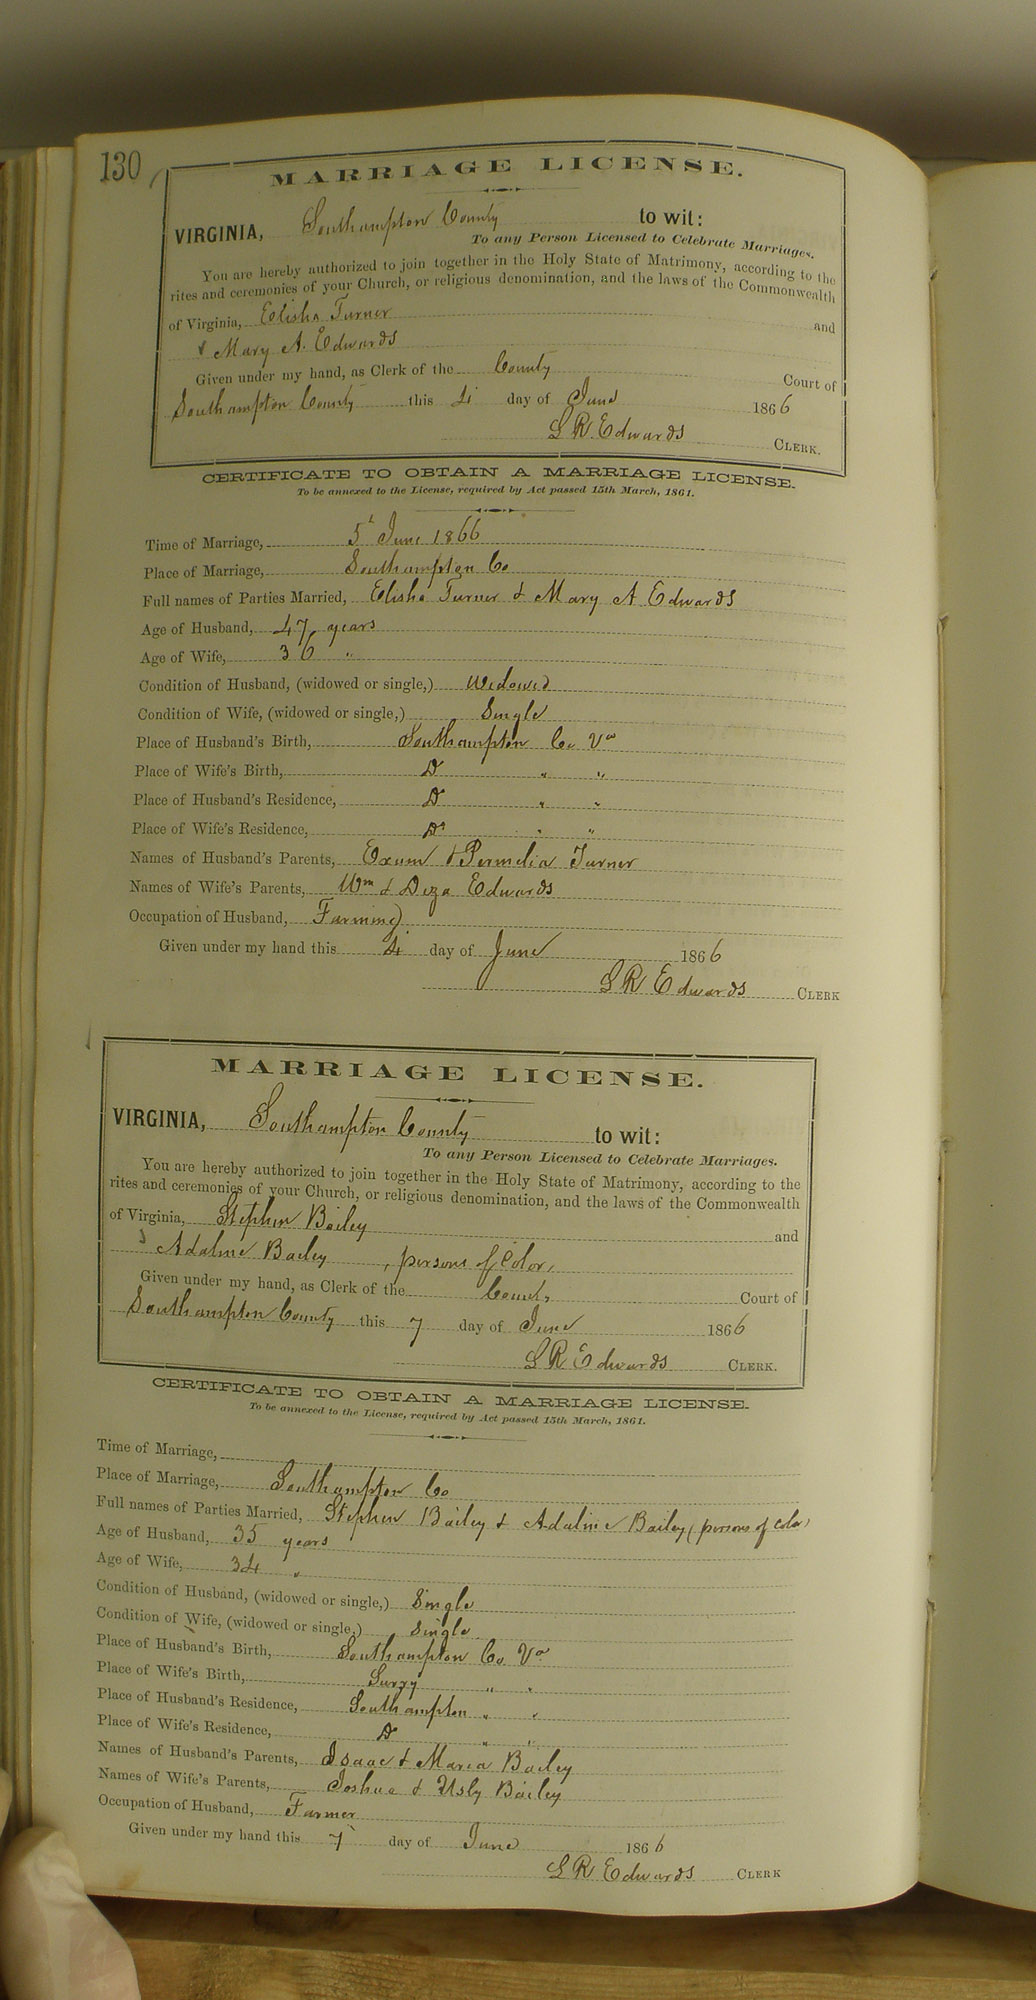 130
MARRIAGE LICENSE.
VIRGINIA, Southampton County to wit:
To any Person Licensed to Celebrate Marriages.
You are hereby authorized to join together in the Holy State of Matrimony, according to the
rites and ceremonies of your Church, or religious denomination, and the laws of the Commonwealth
of Virginia, Elisha Turner and
& Mary A. Edwards
Given under my hand, as Clerk of the County Court of
Southampton County this 4 day of June 1866
L R Edwards CLERK.
CERTIFICATE TO OBTAIN A MARRIAGE LICENSE.
To be annexed to the License, required by Act passed 15th March, 1861.
Time of Marriage, 5 June 1866
Place of Marriage, Southampton Co
Full names of Parties Married, Elisha Turner & Mary A Edwards
Age of Husband, 47 years
Age of Wife, 36 "
Condition of Husband, (widowed or single,) Widowed
Condition of Wife, (widowed or single,) Single
Place of Husband's Birth, Southampton Co Va
Place of Wife's Birth, Do " "
Place of Husband's Residence, Do " "
Place of Wife's Residence, Do " "
Names of Husband's Parents, Exum & Permelia Turner
Names of Wife's Parents, Wm & Diza Edwards
Occupation of Husband, Farming
Given under my hand this 4 day of June 1866
L R Edwards CLERK
MARRIAGE LICENSE.
VIRGINIA, Southampton County to wit:
To any Person Licensed to Celebrate Marriages.
You are hereby authorized to join together in the Holy State of Matrimony, according to the
rites and ceremonies of your Church, or religious denomination, and the laws of the Commonwealth
of Virginia, Stephen Bailey and
& Adaline Bailey, persons of Color,
Given under my hand, as Clerk of the County Court of
Southampton County this 7 day of June 1866
L R Edwards CLERK.
CERTIFICATE TO OBTAIN A MARRIAGE LICENSE.
To be annexed to the License, required by Act passed 15th March, 1861.
Time of Marriage,
Place of Marriage, Southampton Co
Full names of Parties Married, Stephen Bailey & Adaline Bailey (persons of Color)
Age of Husband, 35 years
Age of Wife, 34 "
Condition of Husband, (widowed or single,) Single
Condition of Wife, (widowed or single,) Single
Place of Husband's Birth, Southampton Co Va
Place of Wife's Birth, Surry " "
Place of Husband's Residence, Southampton " "
Place of Wife's Residence, Do " "
Names of Husband's Parents, Isaac & Maria Bailey
Names of Wife's Parents, Joshua & Usly Bailey
Occupation of Husband, Farmer
Given under my hand this 7 day of June 1866
L R Edwards CLERK